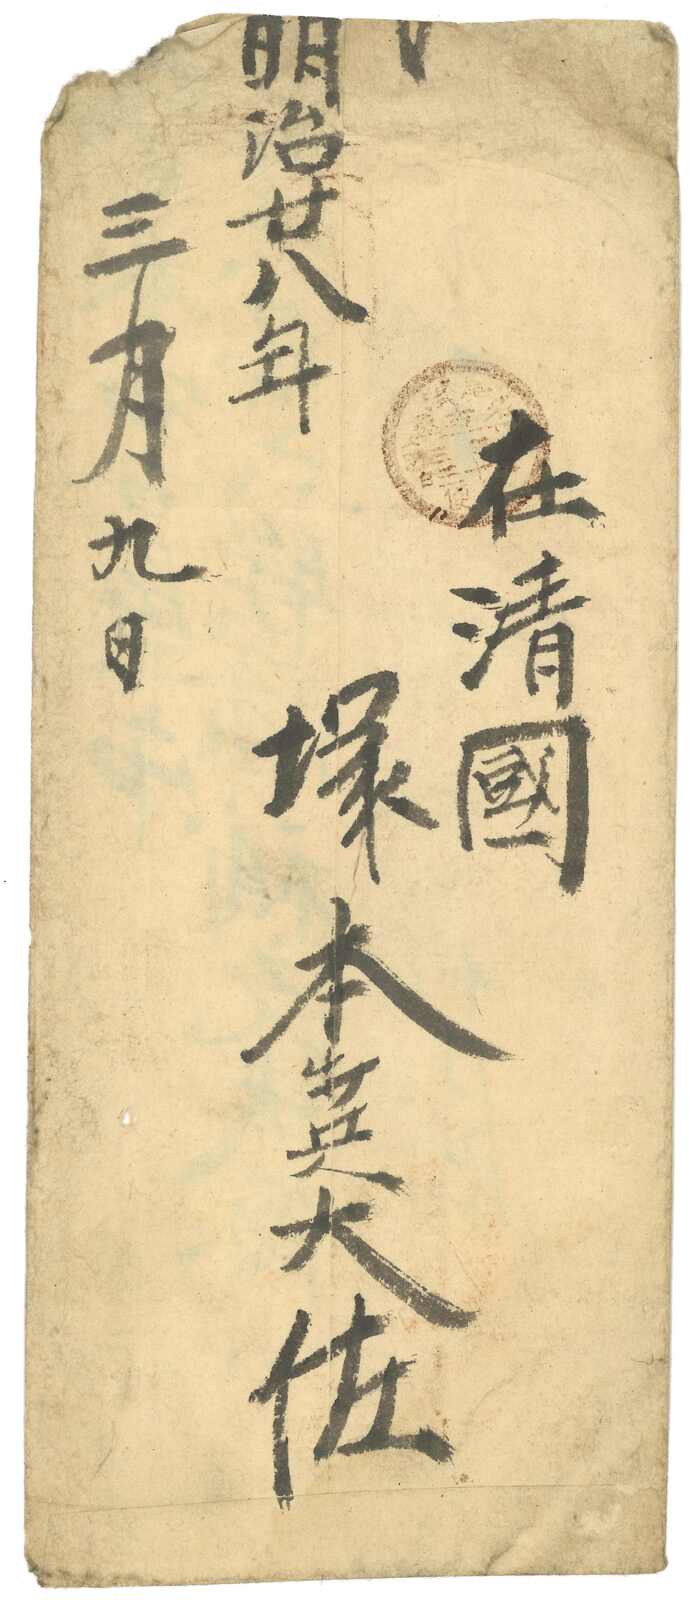 在清國
塚本歩兵大佐
明治廿八年
三月九日